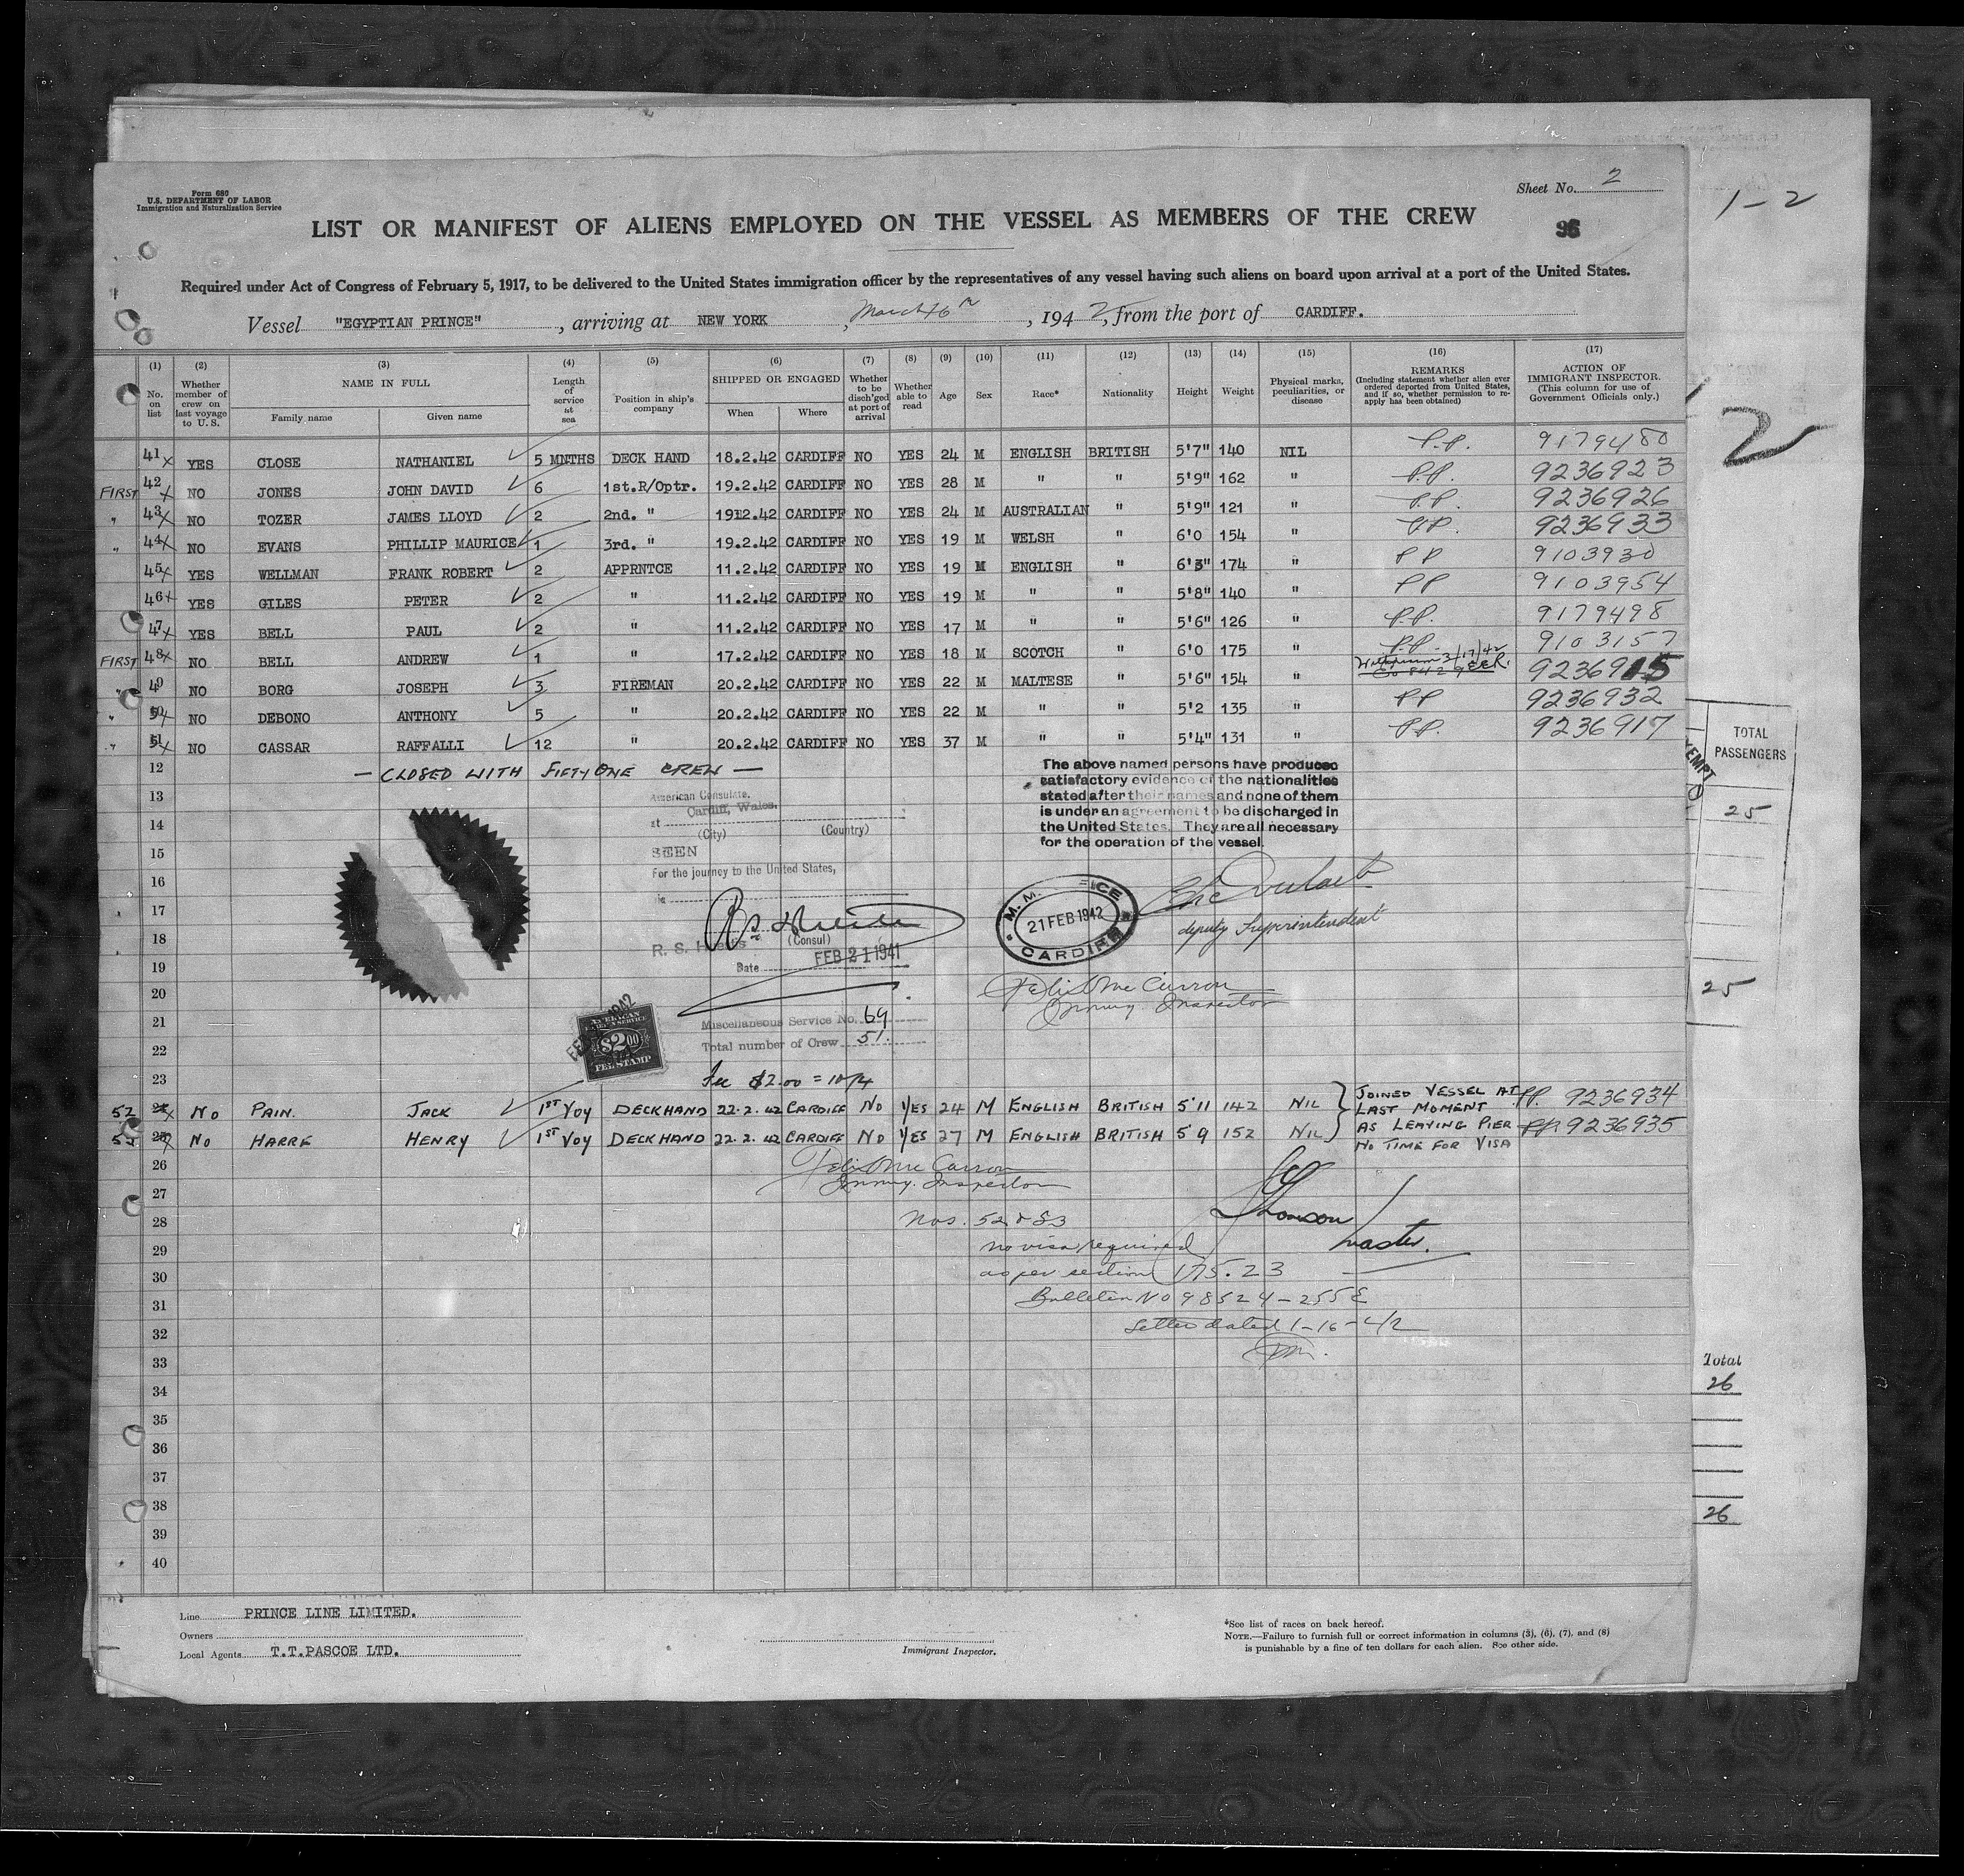 Form 680
U.S. DEPARTMENT OF LABOR
Immigration and Naturalization Service
Sheet No. 2
1-2
LIST OR MANIFEST OF ALIENS EMPLOYED ON THE VESSEL AS MEMBERS OF THE CREW
Required under Act of Congress of February 5, 1917, to be delivered to the United States immigration officer by the representatives of any vessel having such aliens on board upon arrival at a port of the United States.
Vessel "EGYPTIAN PRINCE", arriving at NEW YORK, March 16th, 1942, from the port of CARDIFF.
(1) No. on list
(2) Whether member of crew on last voyage to U. S.
(3) NAME IN FULL Family name Given name
(4) Length of service at sea
(5) Position in ship's company
(6) SHIPPED OR ENGAGED When Where
(7) Whether to be disch'ged at port of arrival
(8) Whether able to read
(9) Age
(10) Sex
(11) Race*
(12) Nationality
(13) Height
(14) Weight
(15) Physical marks, peculiarities, or disease
(16) REMARKS (Including statement whether alien ever ordered deported from United States, and if so, whether permission to re-apply has been obtained)
(17) ACTION OF IMMIGRANT INSPECTOR. (This column for use of Government Officials only.)
2
41 x YES CLOSE NATHANIEL 5 MNTHS DECK HAND 18.2.42 CARDIFF NO YES 24 M ENGLISH BRITISH 5'7" 140 NIL P.P. 9179480
FIRST 42 x NO JONES JOHN DAVID 6 1st.R/Optr. 19.2.42 CARDIFF NO YES 28 M " " 5'9" 162 " P.P. 9236923
" 43 x NO TOZER JAMES LLOYD 2 2nd. " 19.2.42 CARDIFF NO YES 24 M AUSTRALIAN " 5'9" 121 " P.P. 9236926
" 44 x NO EVANS PHILLIP MAURICE 1 3rd. " 19.2.42 CARDIFF NO YES 19 M WELSH " 6'0 154 " P.P. 9236933
45 x YES WELLMAN FRANK ROBERT 2 APPRNTCE 11.2.42 CARDIFF NO YES 19 M ENGLISH " 6'3" 174 " PP 9103930
46 x YES GILES PETER 2 " 11.2.42 CARDIFF NO YES 19 M " " 5'8" 140 " PP 9103954
47 x YES BELL PAUL 2 " 11.2.42 CARDIFF NO YES 17 M " " 5'6" 126 " P.P. 9179498
FIRST 48 x NO BELL ANDREW 1 " 17.2.42 CARDIFF NO YES 18 M SCOTCH " 6'0 175 " P.P. 9103157
" 49 NO BORG JOSEPH 3 FIREMAN 20.2.42 CARDIFF NO YES 22 M MALTESE " 5'6" 154 " 3/17/42 9236915
" 50 x NO DEBONO ANTHONY 5 " 20.2.42 CARDIFF NO YES 22 M " " 5'2 135 " PP 9236932
" 51 x NO CASSAR RAFFALLI 12 " 20.2.42 CARDIFF NO YES 37 M " " 5'4" 131 " P.P. 9236917
12 — CLOSED WITH FIFTY ONE CREW —
The above named persons have produced
satisfactory evidence of the nationalities
stated after their names and none of them
is under an agreement to be discharged in
the United States. They are all necessary
for the operation of the vessel.
13
14
15
16
17
18
19
20
21
22
23
American Consulate,
at Cardiff, Wales.
(City) (Country)
SEEN
For the journey to the United States,
(Consul)
Date FEB 21 1941
M. M. OFFICE
21 FEB 1942
CARDIFF
deputy Superintendent
Felix McCurron
Immig. Inspector
AMERICAN
$2.00
FEE STAMP
Miscellaneous Service No. 69
Total number of Crew 51.
Fee $2.00 = 10/4
52 x NO PAIN. JACK 1ST VOY DECKHAND 22.2.42 CARDIFF NO YES 24 M ENGLISH BRITISH 5'11 142 NIL PP. 9236934
53 x NO HARRE HENRY 1ST VOY DECKHAND 22.2.42 CARDIFF NO YES 27 M ENGLISH BRITISH 5'9 152 NIL PP. 9236935
JOINED VESSEL AT
LAST MOMENT
AS LEAVING PIER
NO TIME FOR VISA
26
27
28
29
30
31
32
33
34
35
36
37
38
39
40
Felix McCurron
Immig. Inspector
Thomson
Master.
Nos. 52 & 53
no visa required
as per section 175.23
Bulletin No 98524-255E
Letter dated 1-16-42
TOTAL
PASSENGERS
25
25
Total
26
26
Line PRINCE LINE LIMITED.
Owners
Local Agents T.T.PASCOE LTD.
Immigrant Inspector.
*See list of races on back hereof.
NOTE.—Failure to furnish full or correct information in columns (3), (6), (7), and (8)
is punishable by a fine of ten dollars for each alien. See other side.